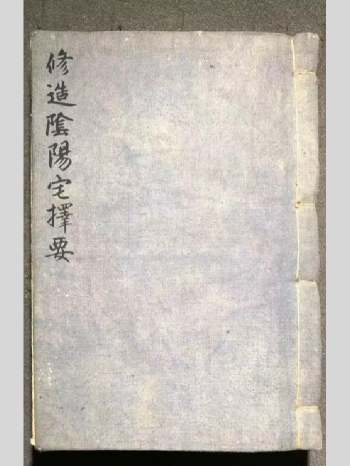 修造陰陽宅擇要